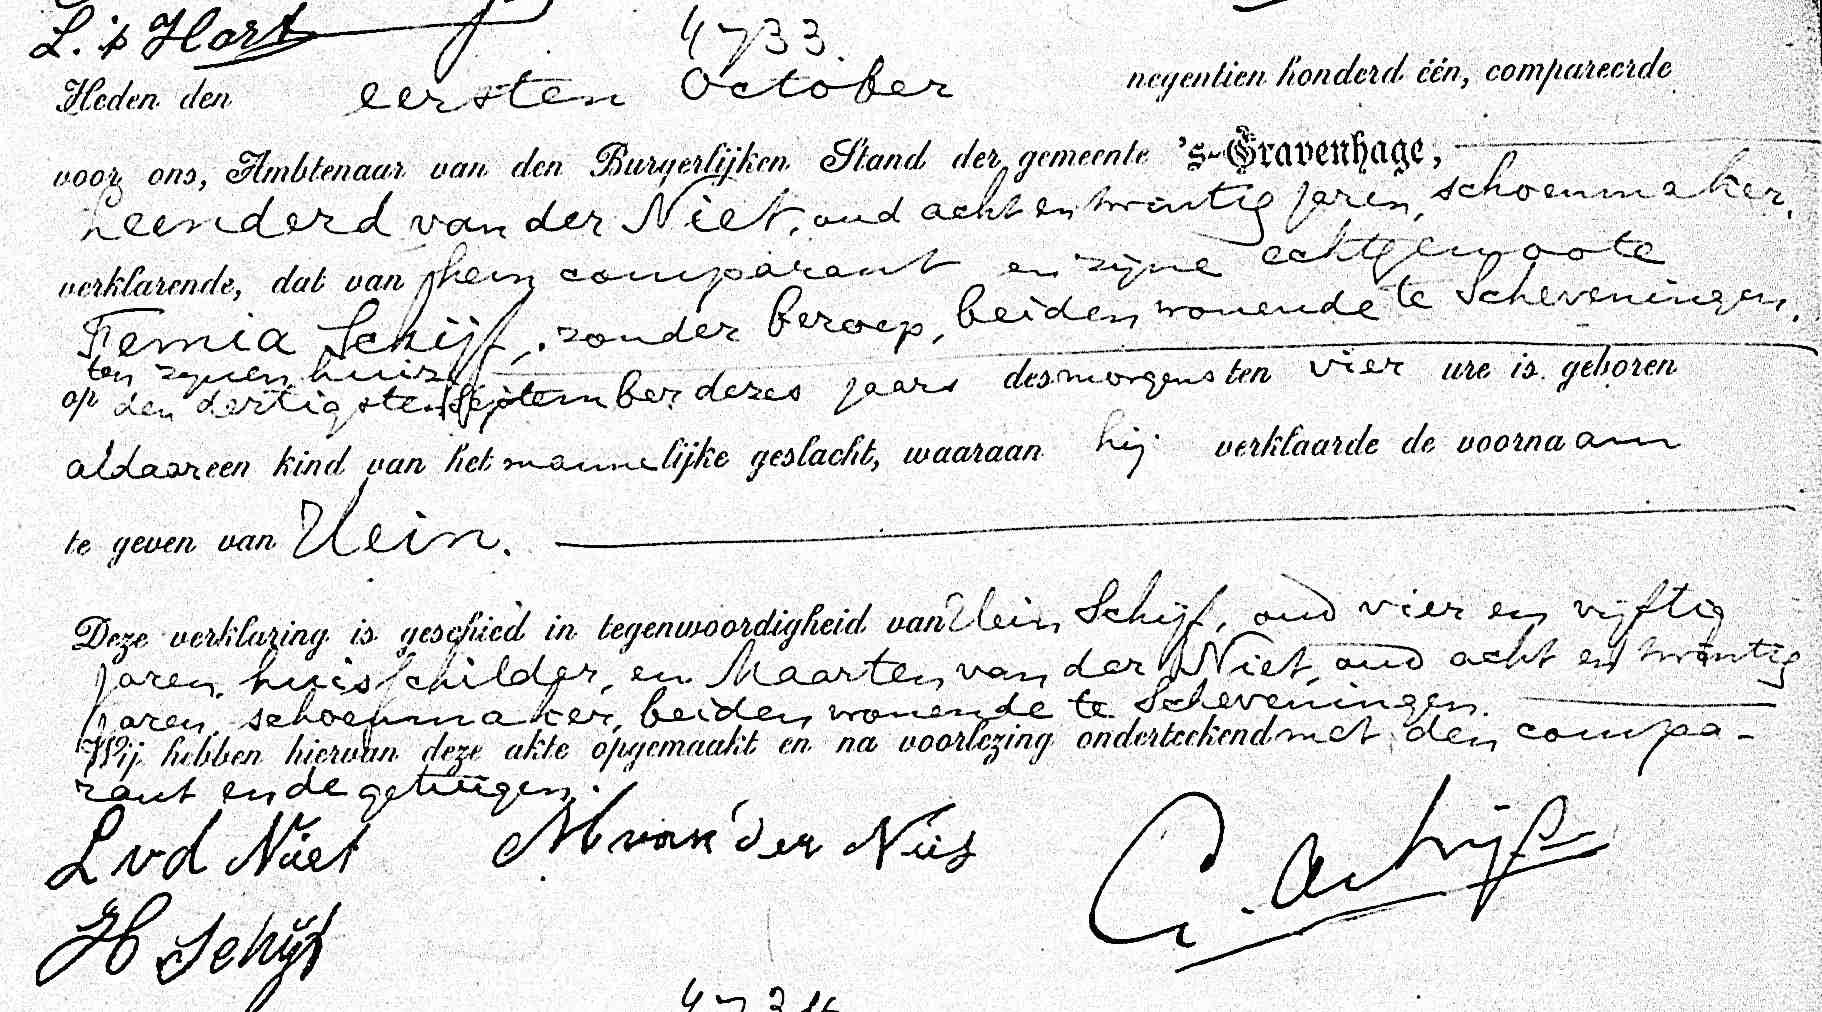 L. 't Hart
4733
Heden den eersten October negentien honderd één, compareerde
voor ons, Ambtenaar van den Burgerlijken Stand der gemeente 's-Gravenhage,
Leenderd van der Niet, oud acht en twintig jaren, schoenmaker,
verklarende, dat van hem comparant en zijne echtgenoote
Femia Schijf, zonder beroep, beiden wonende te Scheveningen,
ten zijnen huize
op den dertigsten September dezes jaars des morgens ten vier ure is geboren
aldaar een kind van het mannelijke geslacht, waaraan hij verklaarde de voornaam
te geven van Hein.
Deze verklaring is geschied in tegenwoordigheid van Hein Schijf, oud vier en vijftig
jaren, huisschilder, en Maarten van der Niet, oud acht en twintig
jaren, schoenmaker, beiden wonende te Scheveningen.
Wij hebben hiervan deze akte opgemaakt en na voorlezing onderteekend met den compa-
rant en de getuigen.
L vd Niet M van der Niet
H Schijf
4734